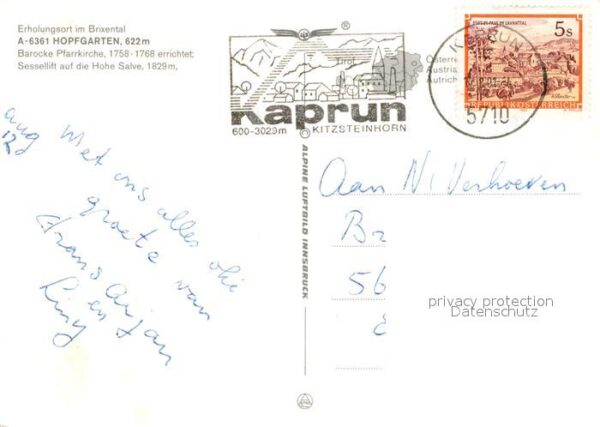 Erholungsort im Brixental
A-6361 HOPFGARTEN, 622m
Barocke Pfarrkirche, 1758-1768 errichtet;
Sessellift auf die Hohe Salve, 1829m,
Tirol
Kaprun
600-3029m KITZSTEINHORN
KAPRUN
5710
5s
REPUBLIK ÖSTERREICH
Österre
Austria
Autrich
ALPINE LUFTBILD INNSBRUCK
aug
Met ons alles oké
groete van
Frans Arjan
en
Liny
Aan N. Verhoeven
Br
56
privacy protection
Datenschutz